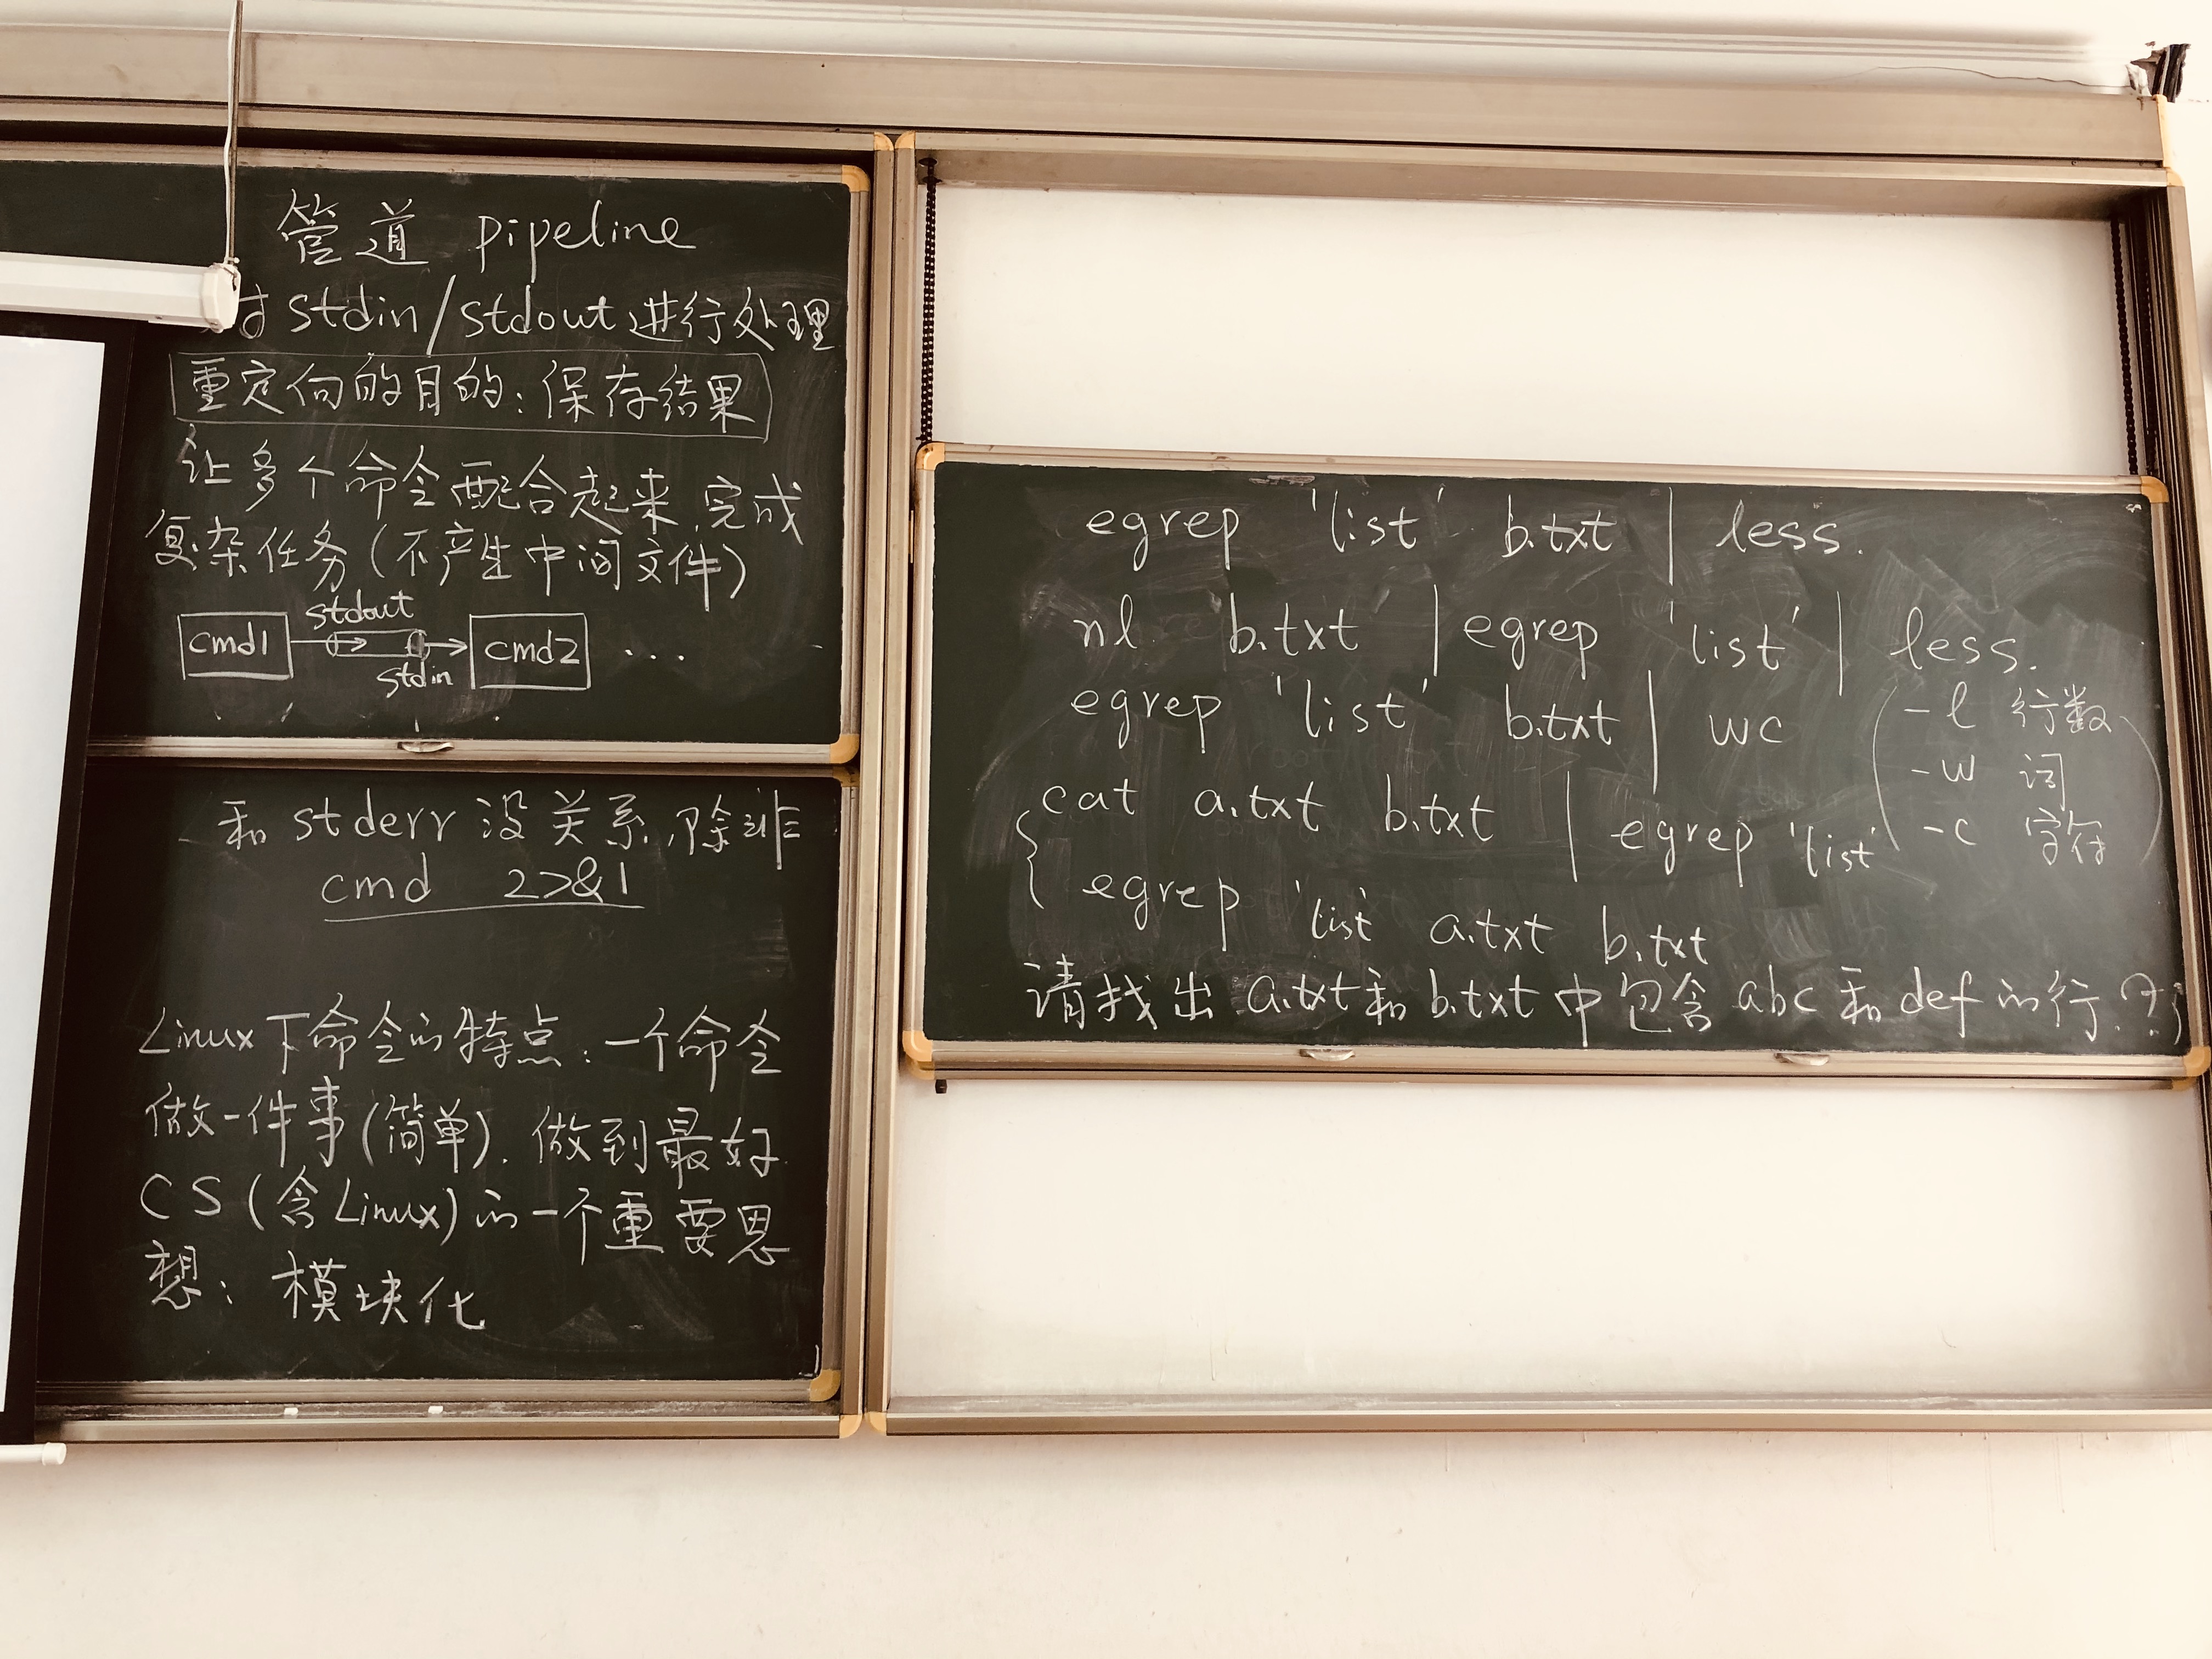 管道 pipeline
对 stdin/stdout 进行处理
重定向的目的:保存结果
让多个命令配合起来,完成
复杂任务(不产生中间文件)
stdout
cmd1 cmd2 ...
stdin
和 stderr 没关系,除非
cmd 2>&1
Linux下命令的特点:一个命令
做一件事(简单).做到最好
CS(含Linux)的一个重要思
想:模块化
egrep 'list' b.txt | less.
nl b.txt | egrep 'list' | less.
egrep 'list' b.txt | wc
(-l 行数
-w 词
-c 字符)
{cat a.txt b.txt | egrep 'list'
egrep 'list' a.txt b.txt
请找出 a.txt和b.txt中包含abc和def的行.